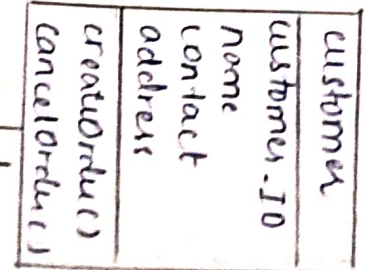 customer
customer_ID
name
contact
address
createOrder()
cancelOrder()